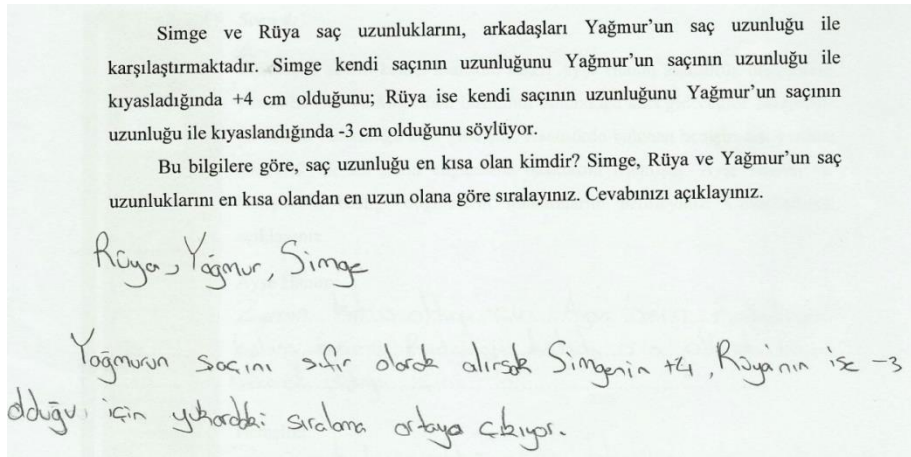 Simge ve Rüya saç uzunluklarını, arkadaşları Yağmur'un saç uzunluğu ile
karşılaştırmaktadır. Simge kendi saçının uzunluğunu Yağmur'un saçının uzunluğu ile
kıyasladığında +4 cm olduğunu; Rüya ise kendi saçının uzunluğunu Yağmur'un saçının
uzunluğu ile kıyaslandığında -3 cm olduğunu söylüyor.
Bu bilgilere göre, saç uzunluğu en kısa olan kimdir? Simge, Rüya ve Yağmur'un saç
uzunluklarını en kısa olandan en uzun olana göre sıralayınız. Cevabınızı açıklayınız.
Rüya, Yağmur, Simge
Yağmurun saçını sıfır olarak alırsak Simgenin +4, Rüya'nın ise -3
olduğu için yukardaki sıralama ortaya çıkıyor.